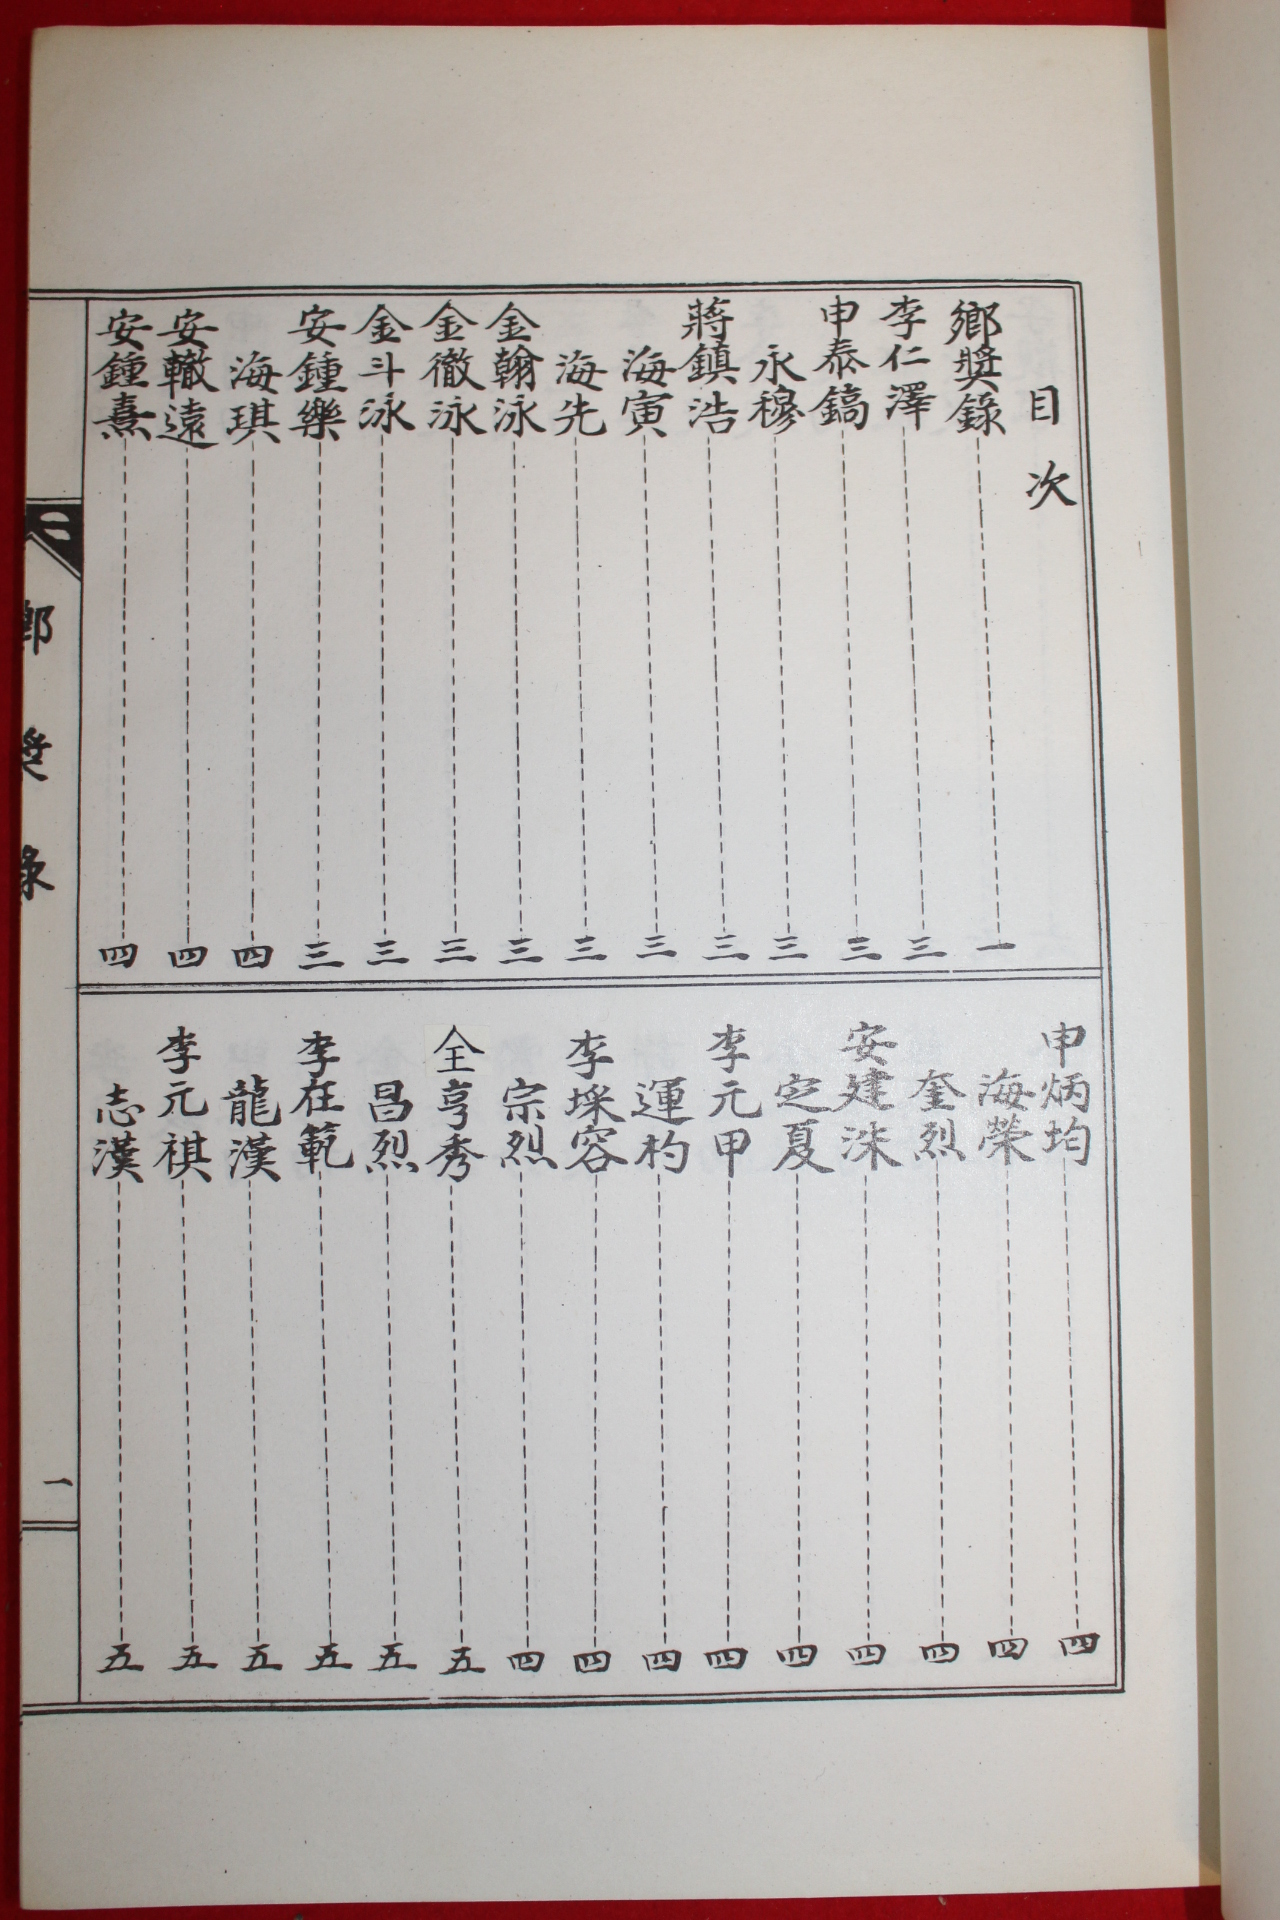 目次
鄕奬錄 一
李仁澤 三
申泰鎬 三
永穆 三
蔣鎭浩 三
海寅 三
海先 三
金翰泳 三
金徹泳 三
金斗泳 三
安鍾樂 三
海琪 四
安轍遠 四
安鍾熹 四
申炳均 四
海榮 四
奎烈 四
安建洙 四
定夏 四
李元甲 四
運杓 四
李埰容 四
宗烈 四
全亨秀 五
昌烈 五
李在範 五
龍漢 五
李元祺 五
志漢 五
鄕奬錄
一